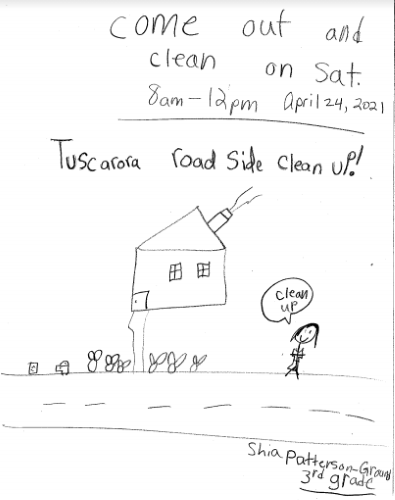 come out and
clean on Sat.
8am-12pm April 24, 2021
Tuscarora road side clean up!
clean
up
Shia Patterson-Ground
3rd grade